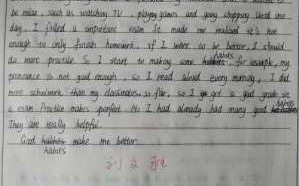 be mine, such as watching TV, playing games and going shopping. Until one
day, I failed a important exam. It made me realized it's not
enough to only finish homework, if I want to be better, I should
do more practice. So I start to making some habits, for example, my
pronounce is not good enough, so I read aloud every morning. I did
more schoolwork than my classmates, so far, so I get a good grade in
a exam. Practice makes perfect. Now I had already had many good habits
They are really helpful.
Good habits make me better.